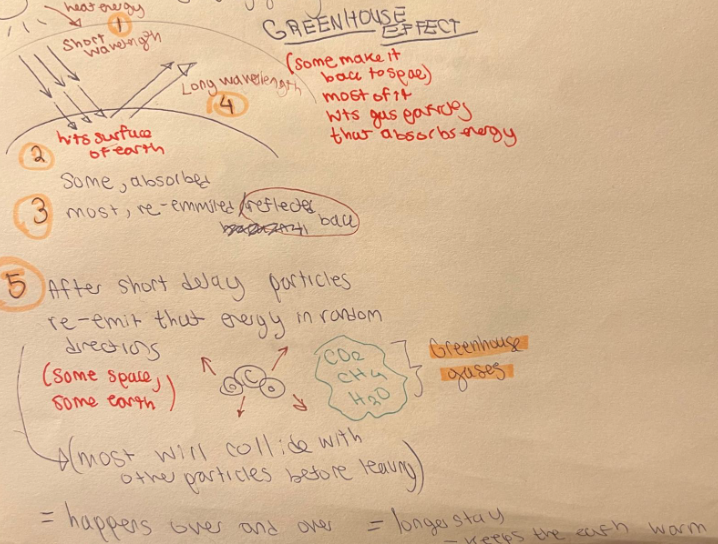 heat energy
1
GREENHOUSE
EFFECT
Short
wavelength
Long wavelength
4
(some make it
bacc to spae)
most of it
hits gas particles
that absorbs energy
hits surface
of earth
2
Some, absorbed
3 most, re-emmited/reflected
bacc
5 After short delay particles
re-emit that energy in random
directions
(some space,
some earth)
O C O
CO2
CH4
H2O
Greenhouse
gases
(most will collide with
other particles before leaving)
= happens over and over = longer stay
- keeps the earth warm